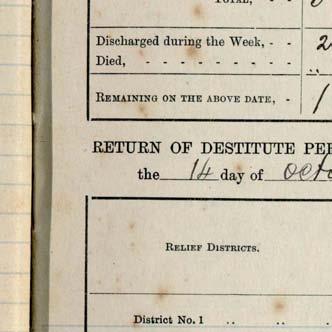 TOTAL, - -
Discharged during the Week, - - 2
Died, - - - - - - - -
REMAINING ON THE ABOVE DATE, - 1
RETURN OF DESTITUTE PE
the 14 day of Octo
RELIEF DISTRICTS.
District No. 1 .. .. ..